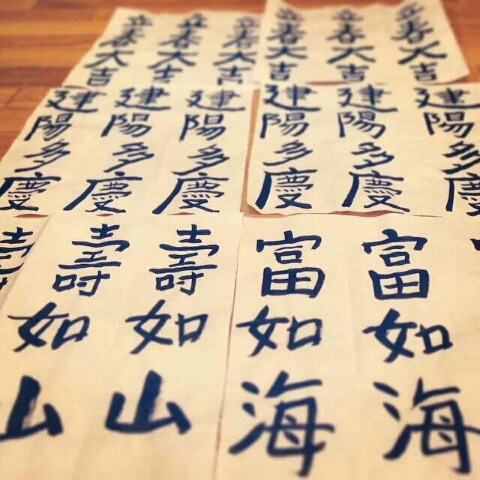 立春大吉
立春大吉
立春大吉
立春大吉
立春大吉
立春大吉
建陽多慶
建陽多慶
建陽多慶
建陽多慶
建陽多慶
建陽多慶
富如海
富如海
壽如山
壽如山
壽